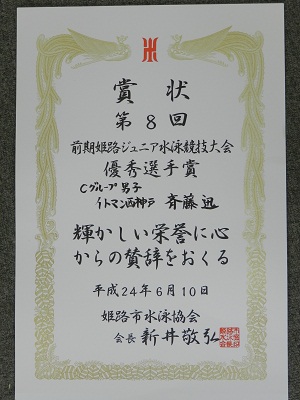 賞状
第8回
前期姫路ジュニア水泳競技大会
優秀選手賞
Cグループ男子
イトマン西神戸 斉藤迅
輝かしい栄誉に心
からの賛辞をおくる
平成24年6月10日
姫路市水泳協会
会長 新井敬弘